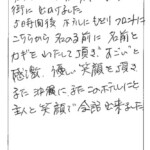 街に出かけました
5時間後 ホテルにもどり フロントに
こちらから 名のる前に 名前と
カギを わたして頂き すごいと
感激、優しい 笑顔を頂き
また 沖縄に またこのホテルにと
主人と 笑顔で 会話 出来ました